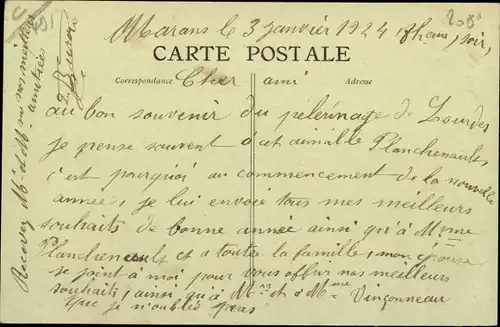 Marans le 3 janvier 1924 8h du soir,
CARTE POSTALE
Correspondance Cher ami Adresse
au bon souvenir du pèlerinage de Lourdes
je pense souvent à cet aimable Planchenault,
c'est pourquoi au commencement de la nouvelle
année, je lui envoie tous mes meilleurs
souhaits de bonne année ainsi qu'à Mme
Planchenault et a toute la famille, mon épouse
se joint à moi pour vous offrir nos meilleurs
souhaits, ainsi qu'à Mr et à Mme Vinçonneau
que je n'oublie pas
Recevez Mr et Mme nos meilleures
amitiées